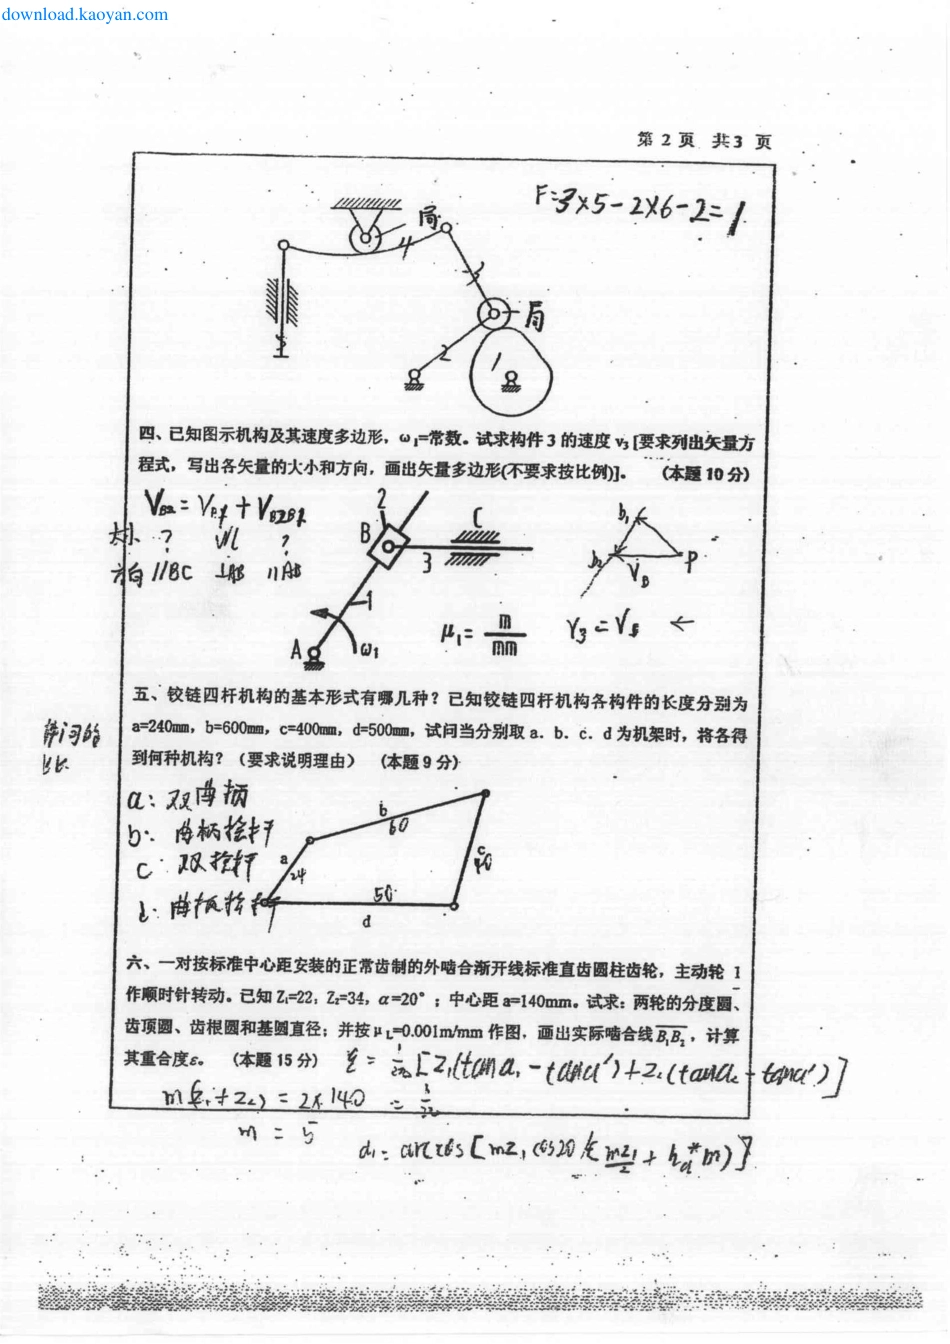 download.kaoyan.com
第 2 页 共 3 页
F=3×5-2×6-2=1
局
4
5
局
2
1
四、已知图示机构及其速度多边形，ω₁=常数。试求构件 3 的速度 v₃ [要求列出矢量方
程式，写出各矢量的大小和方向，画出矢量多边形(不要求按比例)]。 （本题 10 分）
大小 ? ?
方向 //BC ⊥AB //AB
2
B
C
3
1
A
ω₁
b₁
b₂
P
V_B
μ₁= m/mm
←
五、铰链四杆机构的基本形式有哪几种？已知铰链四杆机构各构件的长度分别为
a=240mm，b=600mm，c=400mm，d=500mm，试问当分别取 a．b．c．d 为机架时，将各得
到何种机构？（要求说明理由） （本题 9 分）
a: 双曲柄
b:
c 双
d:
b
60
a
24
c
40
50
d
六、一对按标准中心距安装的正常齿制的外啮合渐开线标准直齿圆柱齿轮，主动轮 1
作顺时针转动。已知 Z₁=22；Z₂=34，α=20°；中心距 a=140mm。试求：两轮的分度圆、
齿顶圆、齿根圆和基圆直径；并按 μL=0.001m/mm 作图，画出实际啮合线B₁B₂，计算
其重合度ε。 （本题 15 分）
m(z₁+z₂) = 2×140
m = 5